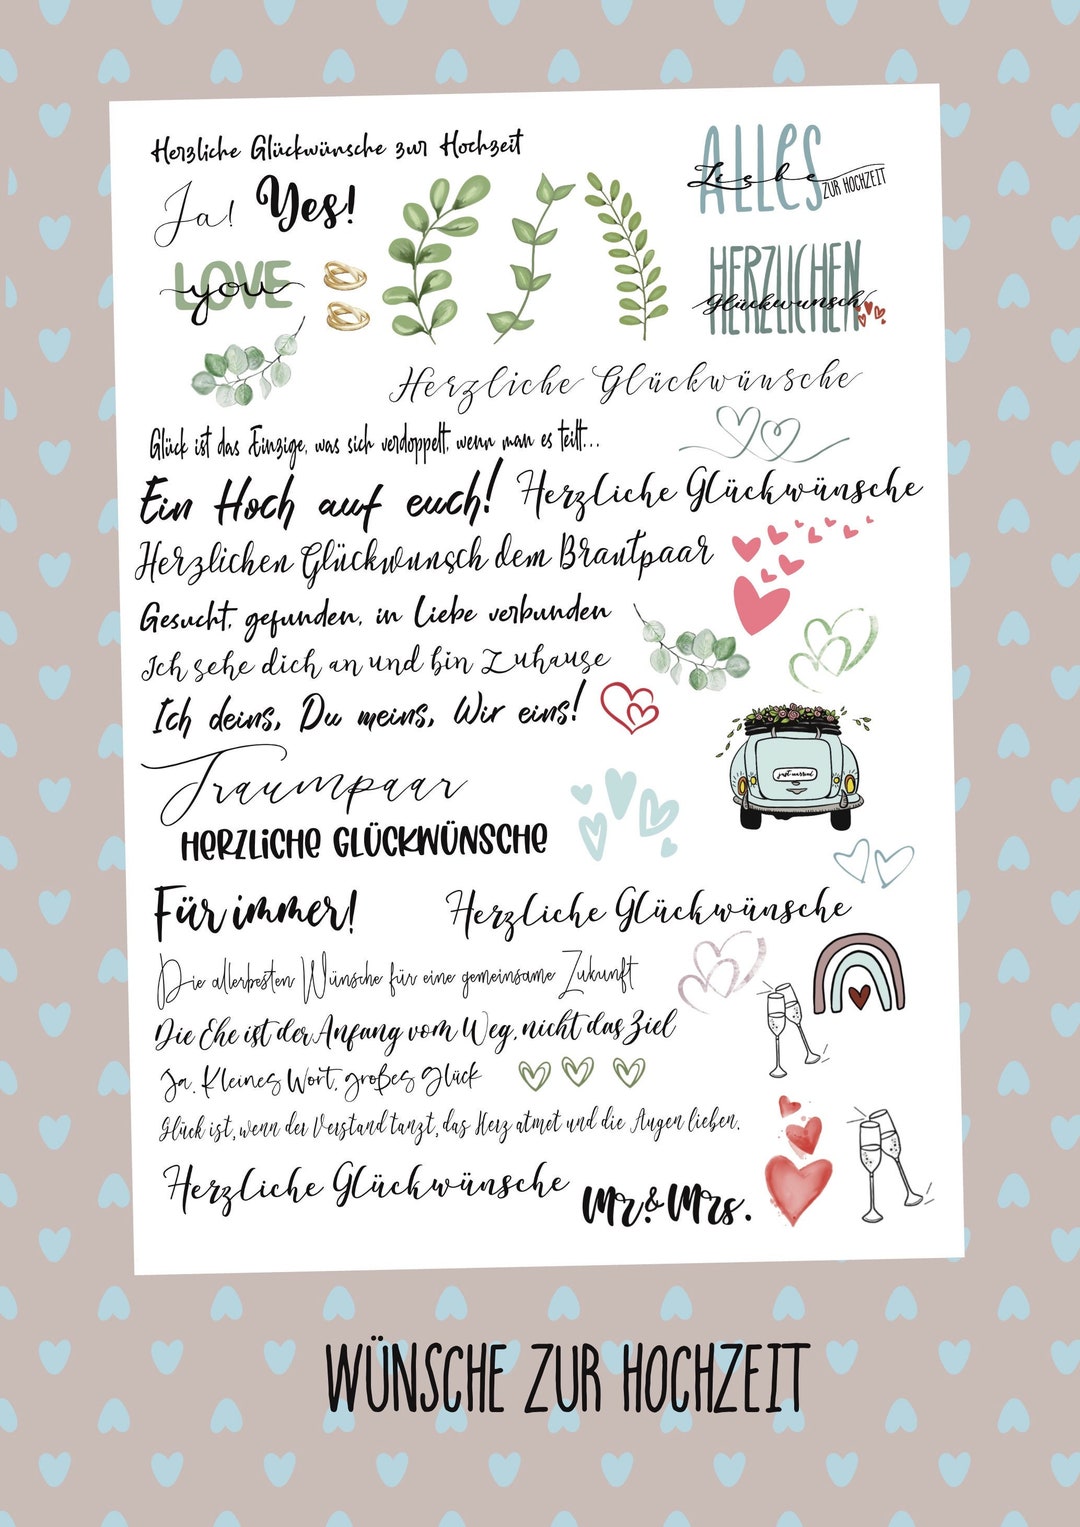 Herzliche Glückwünsche zur Hochzeit
Ja! Yes!
ALLES
Liebe
ZUR HOCHZEIT
LOVE
you
HERZLICHEN
Glückwunsch
Herzliche Glückwünsche
Glück ist das Einzige, was sich verdoppelt, wenn man es teilt...
Ein Hoch auf euch!
Herzliche Glückwünsche
Herzlichen Glückwunsch dem Brautpaar
Gesucht, gefunden, in Liebe verbunden
Ich sehe dich an und bin Zuhause
Ich deins, Du meins, Wir eins!
just married
Traumpaar
HERZLICHE GLÜCKWÜNSCHE
Für immer!
Herzliche Glückwünsche
Die allerbesten Wünsche für eine gemeinsame Zukunft
Die Ehe ist der Anfang vom Weg, nicht das Ziel
Ja. Kleines Wort, großes Glück
Glück ist, wenn der Verstand tanzt, das Herz atmet und die Augen lieben.
Herzliche Glückwünsche
Mr. & Mrs.
WÜNSCHE ZUR HOCHZEIT